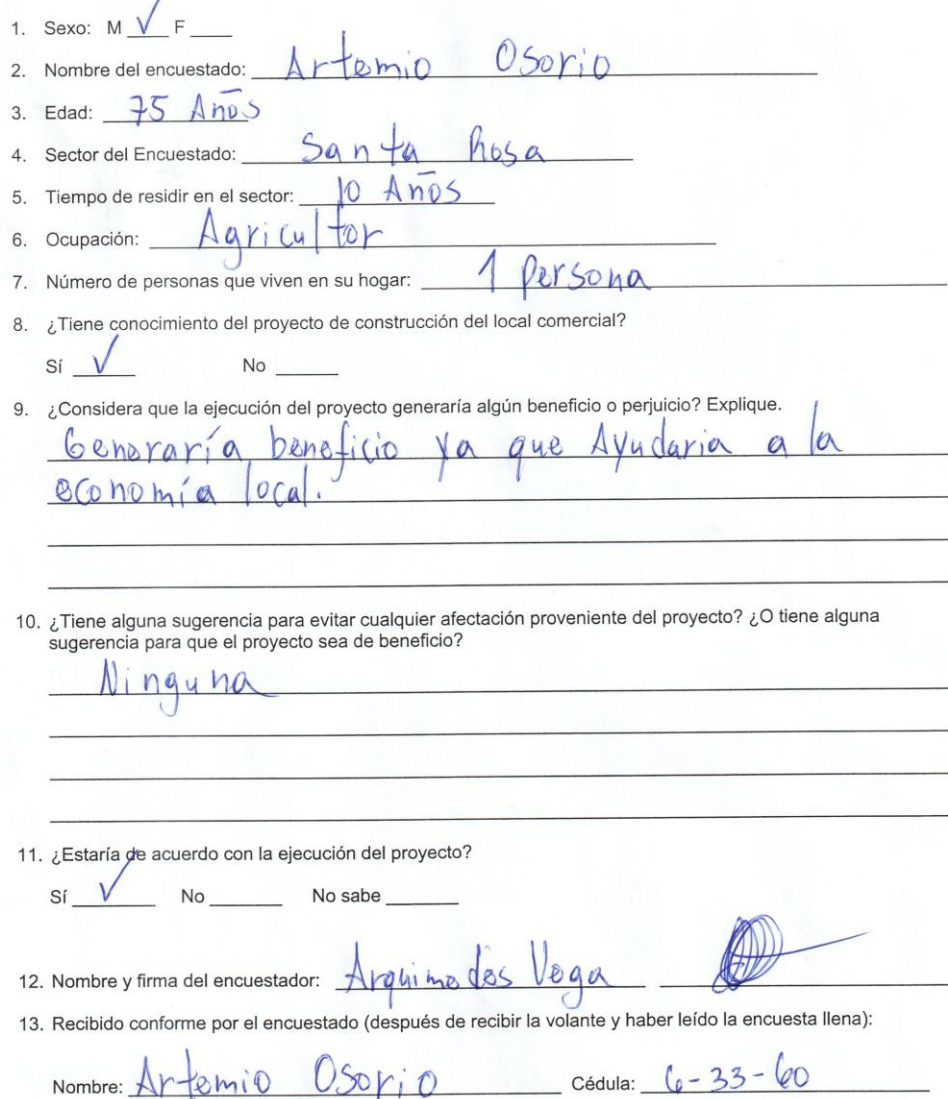 1. Sexo: M √ F ____
2. Nombre del encuestado: Artemio Osorio
3. Edad: 75 Años
4. Sector del Encuestado: Santa Rosa
5. Tiempo de residir en el sector: 10 Años
6. Ocupación: Agricultor
7. Número de personas que viven en su hogar: 1 Persona
8. ¿Tiene conocimiento del proyecto de construcción del local comercial?
Sí √ No ____
9. ¿Considera que la ejecución del proyecto generaría algún beneficio o perjuicio? Explique.
Generaría beneficio ya que Ayudaria a la
economía local.
10. ¿Tiene alguna sugerencia para evitar cualquier afectación proveniente del proyecto? ¿O tiene alguna
sugerencia para que el proyecto sea de beneficio?
Ninguna
11. ¿Estaría de acuerdo con la ejecución del proyecto?
Sí √ No ____ No sabe ____
12. Nombre y firma del encuestador: Arquimedes Vega
13. Recibido conforme por el encuestado (después de recibir la volante y haber leído la encuesta llena):
Nombre: Artemio Osorio Cédula: 6-33-60